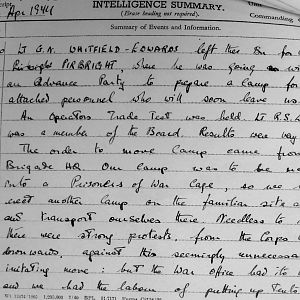 Apr 1944
INTELLIGENCE SUMMARY.
(Please heading not required).
Commanding
Summary of Events and Information.
Lt G.N. WHITFIELD-EDWARDS left this Bn for
PIRBRIGHT, where he was going
an Advance Party to prepare a camp for
attached personnel who will soon leave us
An Operators Trade Test was held. Lt R.S.
was a member of the Board. Results were very
The order to move Camp came from
Brigade HQ. Our camp was to be
into a Prisoners of War Cage, so we
erect another Camp on the familiar site
and transport ourselves there. Needless to
there were strong protests, from the Corps
downwards, against this seemingly unnecessa
irritating move: but the War Office had its
and we had the labour of putting up Tents